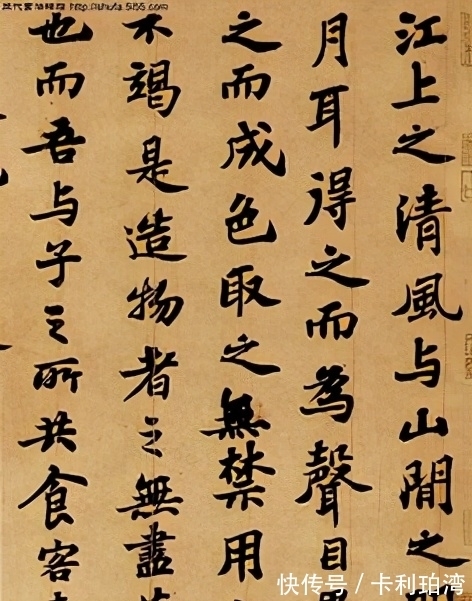 江上之清風与山閒之
月耳得之而為聲目
之而成色取之無禁用
不竭是造物者之無盡
也而吾与子之所共食客
快传号 / 卡利珀湾